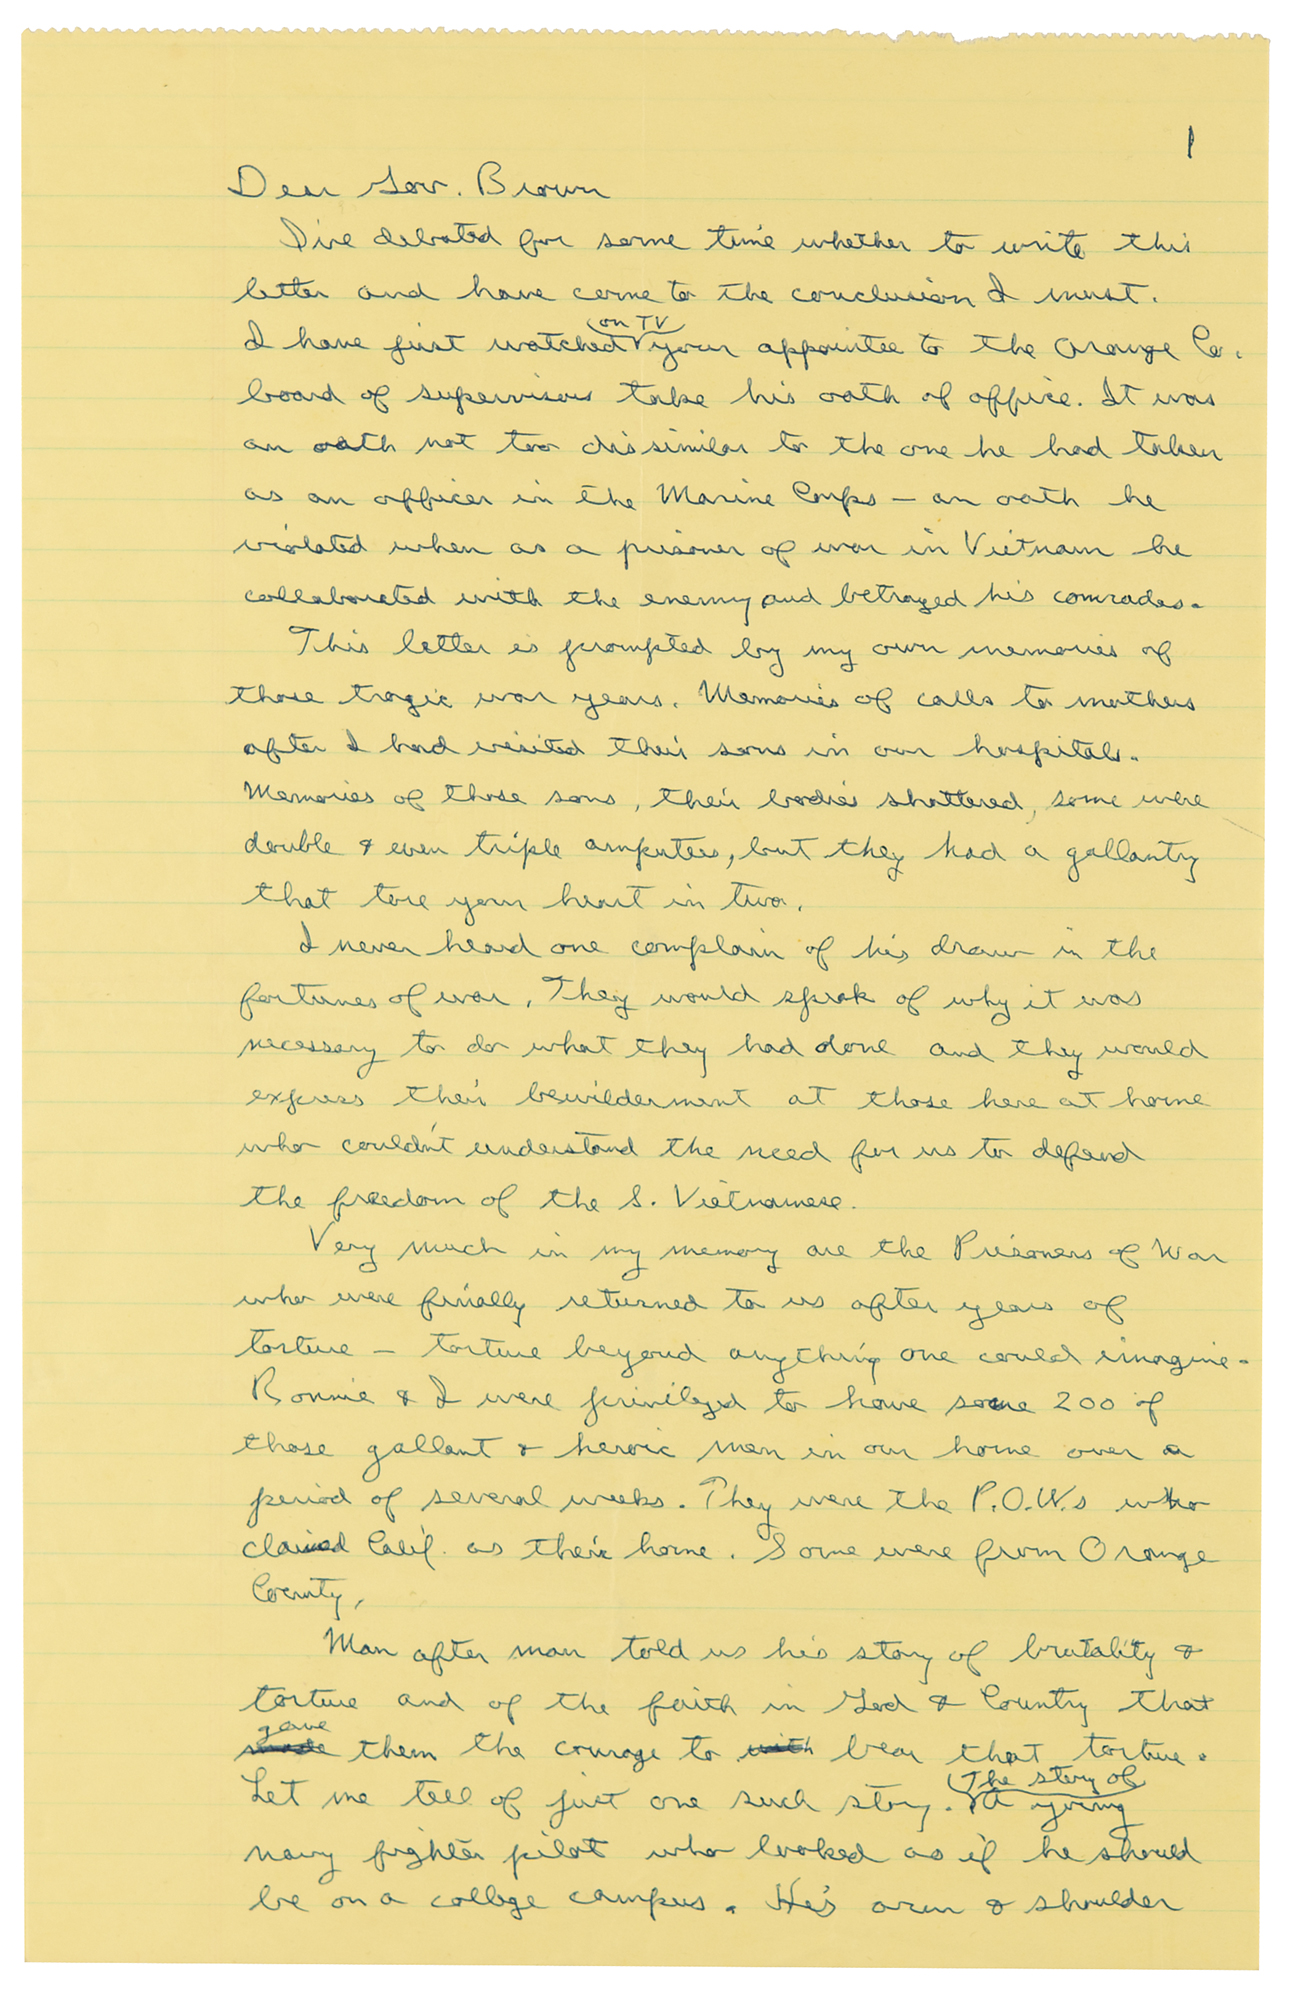 1
Dear Gov. Brown
I've debated for some time whether to write this
letter and have come to the conclusion I must.
on TV
I have just watched your appointee to the Orange Co.
board of supervisors take his oath of office. It was
an oath not too dissimilar to the one he had taken
as an officer in the Marine Corps – an oath he
violated when as a prisoner of war in Vietnam he
collaborated with the enemy and betrayed his comrades.
This letter is prompted by my own memories of
those tragic war years. Memories of calls to mothers
after I had visited their sons in our hospitals.
Memories of those sons, their bodies shattered, some were
double & even triple amputees, but they had a gallantry
that tore your heart in two.
I never heard one complain of his draw in the
fortunes of war. They would speak of why it was
necessary to do what they had done and they would
express their bewilderment at those here at home
who couldn't understand the need for us to defend
the freedom of the S. Vietnamese.
Very much in my memory are the Prisoners of War
who were finally returned to us after years of
torture – torture beyond anything one could imagine.
Ronnie & I were privileged to have some 200 of
those gallant & heroic men in our home over a
period of several weeks. They were the P.O.W.s who
claimed Calif. as their home. Some were from Orange
County.
Man after man told us his story of brutality &
torture and of the faith in God & Country that
gave
made them the courage to with bear that torture.
The story of
Let me tell of just one such story. A young
navy fighter pilot who looked as if he should
be on a college campus. His arm & shoulder